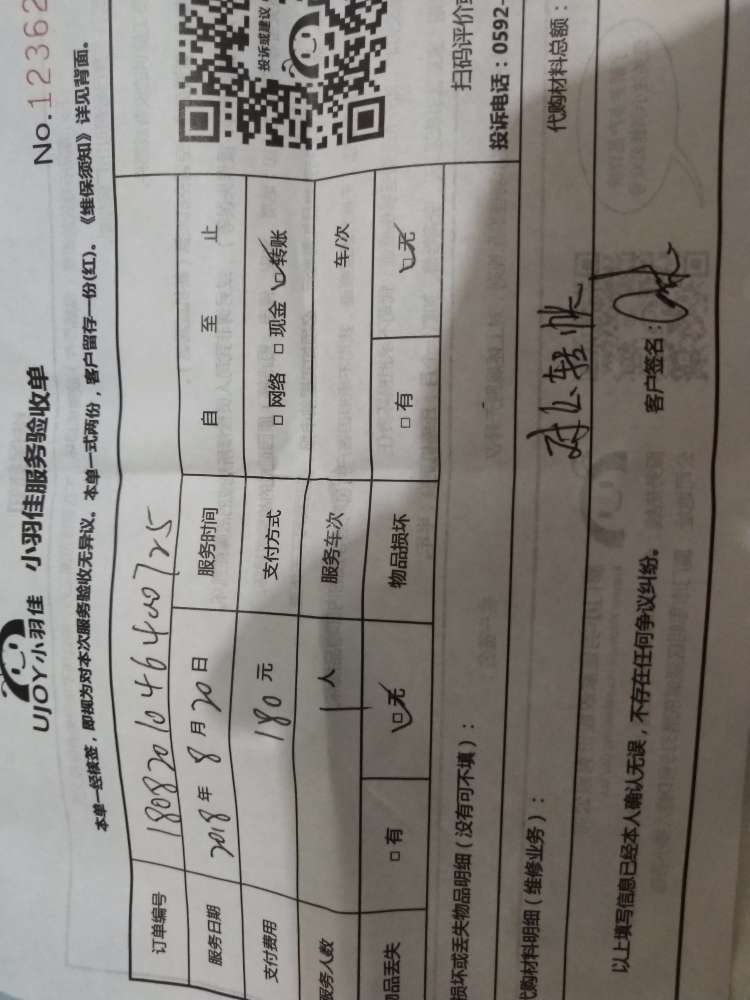 UJOY小羽佳 小羽佳服务验收单
No.12362
本单一经核签，即视为对本次服务验收无异议。本单一式两份，客户留存一份(红)。《维保须知》详见背面。
订单编号 180820104640 0725
服务日期 2018年 8 月 20 日 服务时间 自 至 止
支付费用 180 元 支付方式 □ 网络 □ 现金 ☑转账
服务人数 1 人 服务车次 车/次
物品丢失 □ 有 ☑无 物品损坏 □ 有 ☑无
投诉或建议
扫码评价或
投诉电话：0592-
损坏或丢失物品明细（没有可不填）：
代购材料明细（维修业务）： 代购材料总额：
对公转账
以上填写信息已经本人确认无误，不存在任何争议纠纷。 客户签名：